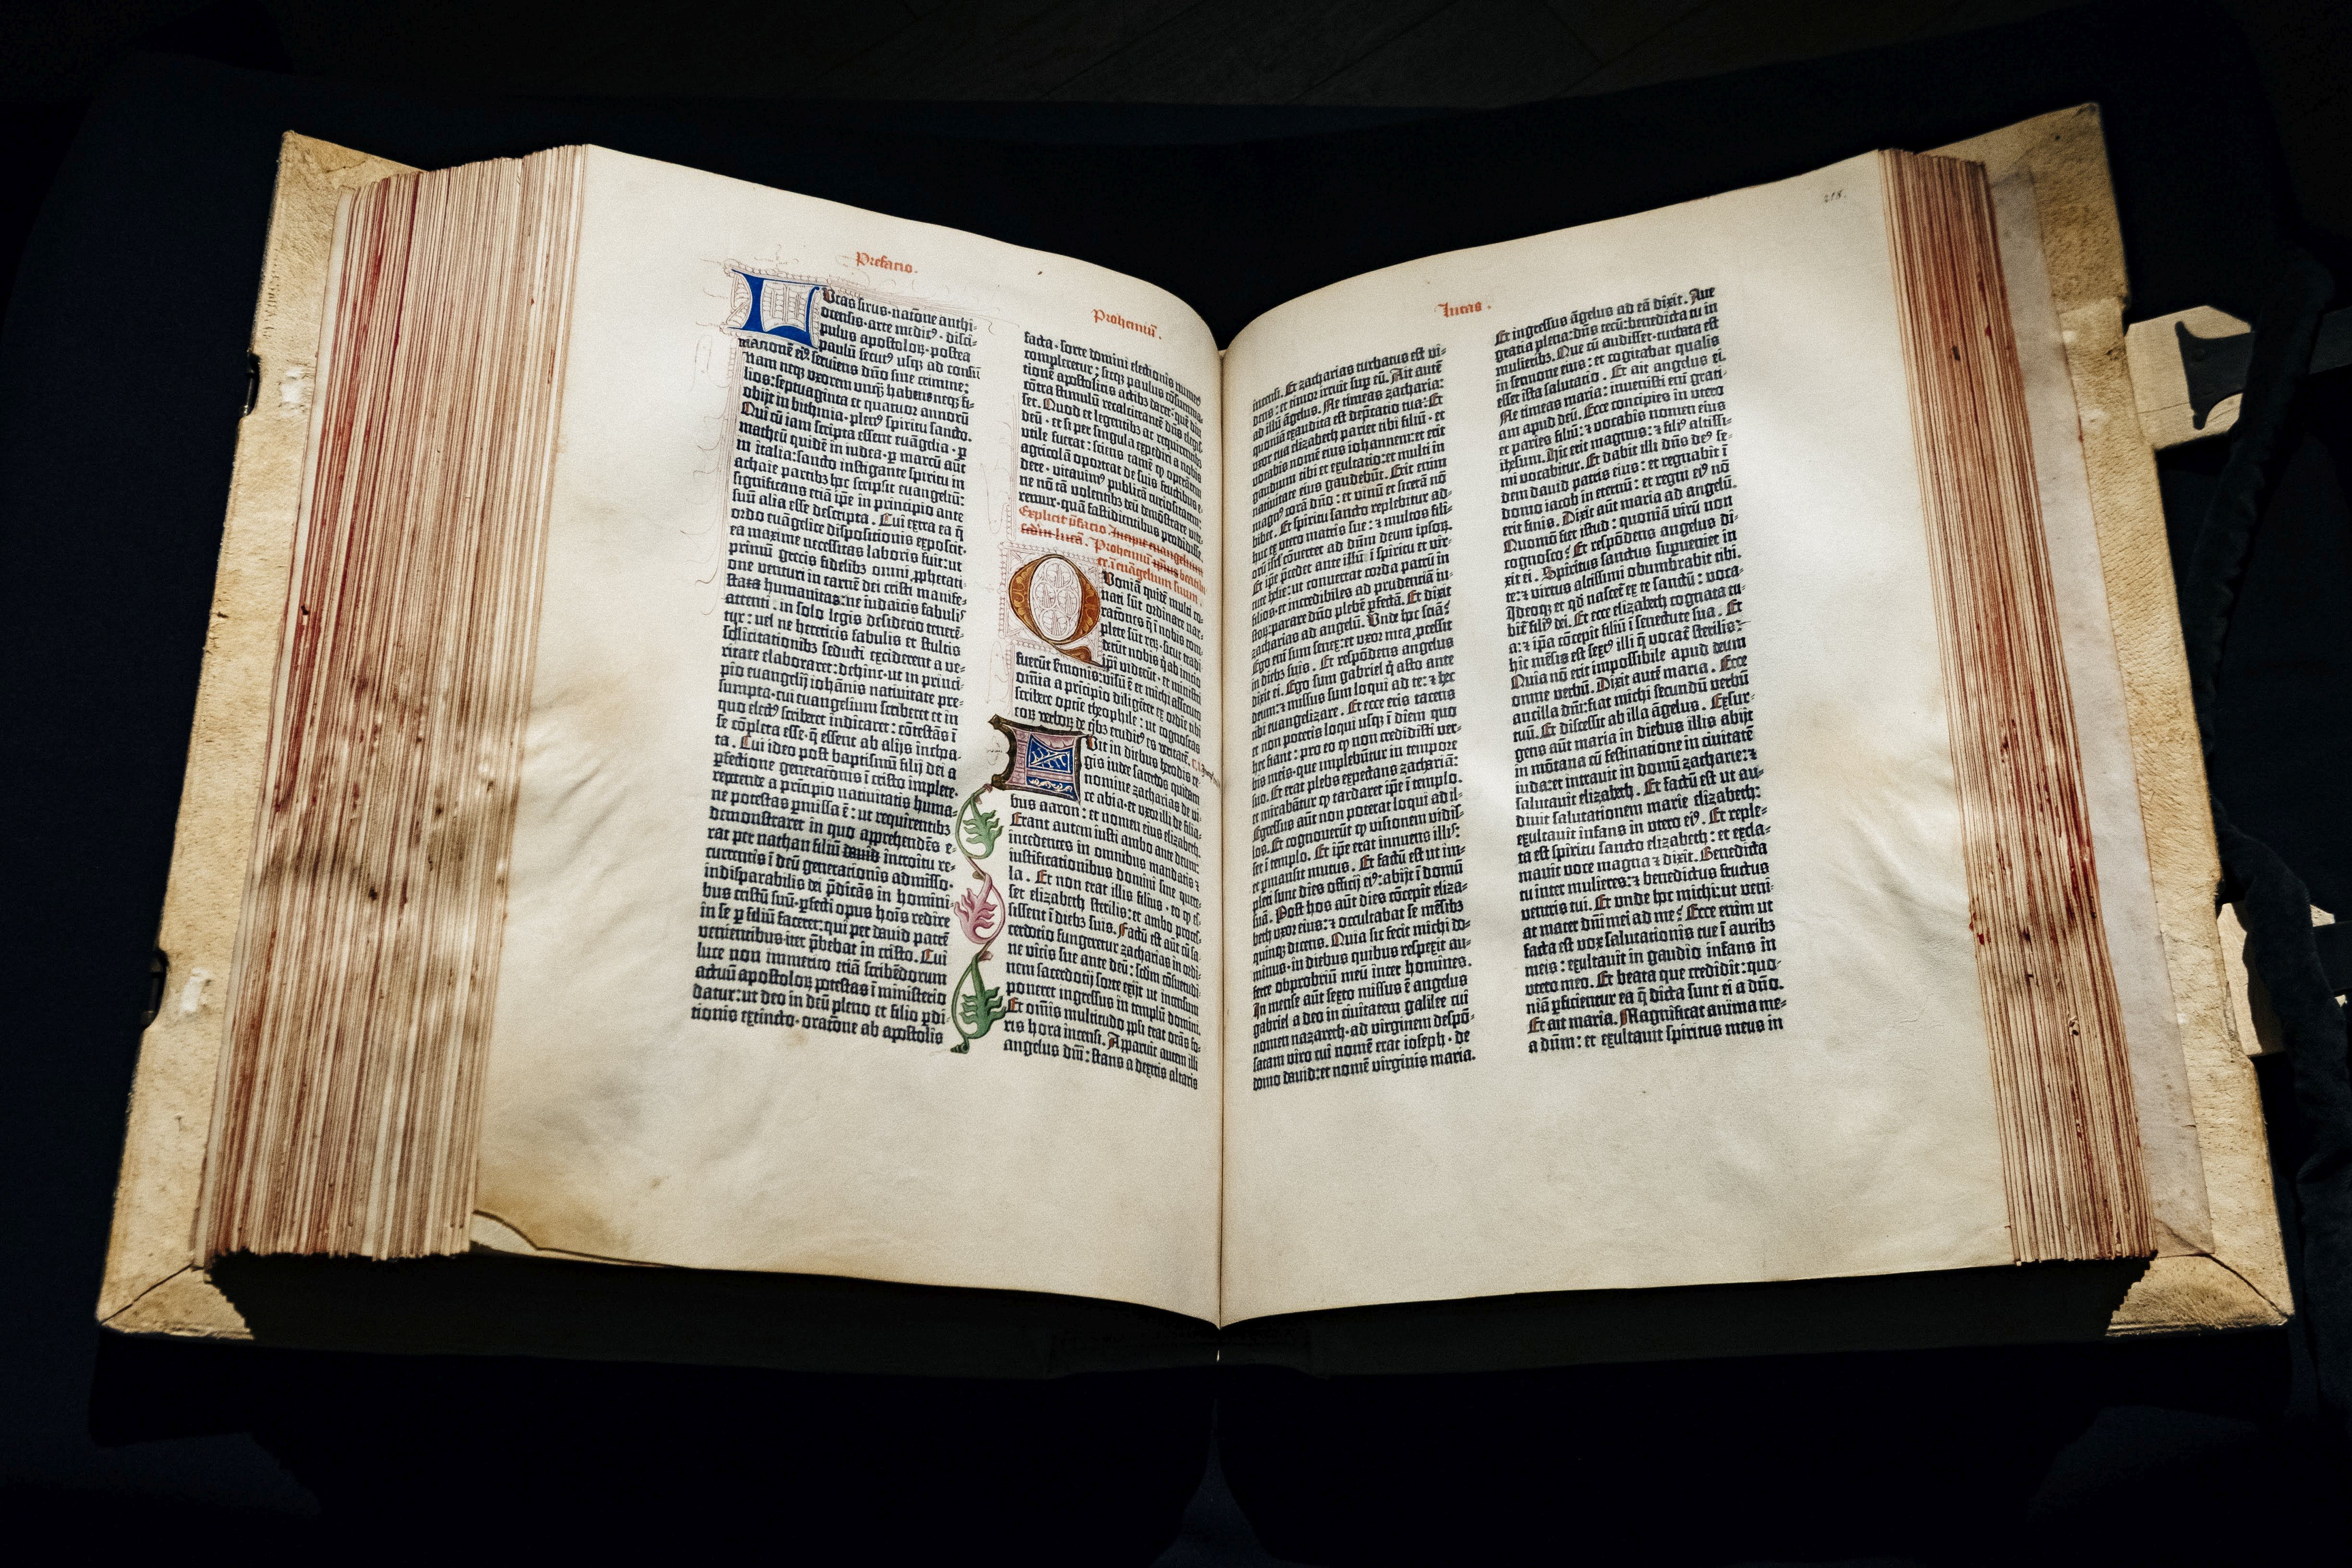 Prefacio.
Lucas sirus· natōne anthi-
ocensis· arte medicꝰ· disci-
pulus apostoloꝝ· postea
paulū secutꝰ usqꝫ ad confessionē
eiꝰ seruiens dño sine crimine:
Nam neqꝫ vxorem unqꝫ habens neqꝫ fi-
lios: septuaginta et quatuor annorū
obijt in bithinia· plenꝰ spiritu sancto.
Qui cū iam scripta essent euāgelia· ꝑ
matheū quidē in iudea· ꝑ marcū aūt
in italia: sancto instigante spiritu in
achaie partibꝫ hoc scripsit euangeliū:
significans etiā ipe in principio ante
suū alia esse descripta. Cui extra ea q̄
ordo euāgelice dispositionis exposcit·
ea maxime necessitas laboris fuit: ut
primū grecis fidelibꝫ omni ꝓphetati-
one venturi in carnē dei cristi manife-
stata humanitas: ne iudaicis fabulis
attenti· in solo legis desiderio tenerē-
tur: uel ne hereticis fabulis et stultis
sollicitationibꝫ seducti exciderent a ve-
ritate elaboraret: dehinc· ut in princi-
pio euangelij iohānis natiuitate pre-
sumpta· cui euangelium scriberet et in
quo electꝰ scriberet indicaret: cōtestās ī
se cōpleta esse· q̄ essent ab alijs inchoa-
ta. Cui ideo post baptismū filij dei a
ꝑfectione generatōnis ī cristo implete·
repetende a prīcipio natiuitatis huma-
ne potestas ꝑmissa ē: ut requirentibꝫ
demonstraret in quo apprehendēs e-
rat per nathan filiū dauid introitu re-
currentis ī deū generationis admisso·
indisparabilis dei p̄dicās in homini-
bus cristū suū· ꝑfecti opus hoīs redire
in se ꝑ filiū faceret: qui per dauid patrē
venientibus iter p̄bebat in cristo. Cui
luce non immerito etiā scribēdorum
actuū apostoloꝝ potestas ī ministerio
datur: ut deo in deū pleno et filio ꝓdi-
tionis extincto· oratōne ab apostolis
Prohemiū.
facta· sorte domini electionis numerꝰ
compleretur: sicqꝫ paulus cōsūma-
tionē apostolicis actibꝫ daret· quē diu
cōtra stimulū recalcitrantē dñs elegis-
set. Quod et legentibꝫ ac requirentibꝫ
deū· et si per singula expediri a nobis
utile fuerat: sciens tamē ꝙ operātem
agricolā oporteat de suis fructibus e-
dere· vitauimꝰ publicā curiositatem:
ne nō tā volentibꝫ deū demōstrare vide-
remur· quā fastidientibus prodidisse.
Explicit p̄facio Incipit euangelium
scdm lucā. Prohemiū ipius beati
luce ī euāgelium suum
Quoniā quidē multi co-
nati sūt ordinare nar-
rationes q̄ ī nobis com-
plete sūt reꝝ· sicut tradi-
derūt nobis q̄ ab inicio
ipi viderūt· et ministri
fuerūt sermonis: visū ē et michi assecuto
omīa a prīcipio diligēter ex ordīe tibi
scribere optīe theophile: ut cognoscas
eoꝝ verboꝝ de qͥbꝫ eruditꝰ es veritatē.
Fuit in diebus herodis re-
gis iudee sacerdos quidam
nomine zacharias de vi-
ce abia· et vxor illi de filia-
bus aaron: et nomen eius elizabeth.
Erant autem iusti ambo ante deum:
incedentes in omnibus mandatis ⁊
iustificationibus domini sine quere-
la. Et non erat illis filius· eo ꝙ es-
set elizabeth sterilis: et ambo proces-
sissent ī diebꝫ suis. Factū est aūt cū sa-
cerdotio fungeretur zacharias in ordi-
ne vicis sue ante deū: scdm cōsuetudi-
nem sacerdotij sorte exijt ut incensum
poneret ingressus in templū domini.
Et omīs multitudo ppli erat orās fo-
ris hora incensi. Apparuit autem illi
angelus dñi: stans a dextris altaris
Lucas.
incensi. Et zacharias turbatus est vi-
dens: et timor irruit suꝑ eū. Ait autē
ad illū āgelus. Ne timeas zacharia:
quoniā exaudita est dep̄catio tua: Et
vxor tua elizabeth pariet tibi filiū· et
vocabis nomē eius iohannem: et erit
gaudium tibi et exultatio: et multi in
natiuitate eius gaudebūt. Erit enim
magnꝰ corā dño: et vinū et sicerā nō
bibet. Et spiritu sancto replebitur ad-
huc ex vtero matris sue: ⁊ multos fili-
orū isrl cōuertet ad dūm deum ipsoꝝ.
Et ipe p̄cedet ante illū ī spiritu et vir-
tute helie: ut conuertat corda patrū in
filios· et incredibiles ad prudentiā iu-
stoꝝ: parare dño plebē ꝑfectā. Et dixit
zacharias ad angelū. Vnde hoc sciā?
Ego eni sum senex: et vxor mea ꝓcessit
in diebꝫ suis. Et respōdens angelus
dixit ei. Ego sum gabriel q̄ asto ante
deum: ⁊ missus sum loqui ad te: ⁊ hec
tibi euangelizare. Et ecce eris tacens
et non poteris loqui usqꝫ ī diem quo
hec fiant: pro eo ꝙ non credidisti ver-
bis meis· que implebūtur in tempore
suo. Et erat plebs expectans zachariā:
et mirabātur ꝙ tardaret ipe ī templo.
Egressus aūt non poterat loqui ad il-
los. Et cognouerūt ꝙ visionem vidis-
set ī templo. Et ipe erat innuens illis:
et ꝑmansit mutus. Et factū est ut im-
pleti sunt dies officij eiꝰ: abijt ī domū
suā. Post hos aūt dies cōcepit eliza-
beth vxor eius: ⁊ occultabat se mēsibꝫ
quinqꝫ dicens. Quia sic fecit michi do-
minus· in diebus quibus respexit au-
ferre obprobriū meū inter homines.
In mense aūt sexto missus ē angelus
gabriel a deo in ciuitatem galilee cui
nomen nazareth· ad virginem despō-
satam viro cui nomē erat ioseph· de
domo dauid: et nomē virginis maria.
218.
Et ingressus āgelus ad eā dixit. Aue
gratia plena: dñs tecū: benedicta tu in
mulieribꝫ. Que cū audisset· turbata est
in sermone eius: et cogitabat qualis
esset ista salutatio. Et ait angelus ei.
Ne timeas maria: inuenisti enī grati-
am apud deū. Ecce concipies in vtero
et paries filiū: ⁊ vocabis nomen eius
ihesum. Hic erit magnus: ⁊ filiꝰ altissi-
mi vocabitur. Et dabit illi dñs deꝰ se-
dem dauid patris eius: et regnabit ī
domo iacob in eternū: et regni eiꝰ nō
erit finis. Dixit aūt maria ad angelū.
Quomō fiet istud: quoniā virū non
cognosco? Et respōdens angelus di-
xit ei. Spiritus sanctus supueniet in
te: ⁊ virtus altissimi obumbrabit tibi.
Ideoqꝫ et qd nascet ex te sanctū: voca-
bit filiꝰ dei. Et ecce elizabeth cognata tu-
a: ⁊ ipa cōcepit filiū ī senectute sua. Et
hic mēsis est sextꝰ illi q̄ vocat̄ sterilis:
Quia nō erit impossibile apud deum
omne verbū. Dixit autē maria. Ecce
ancilla dñi: fiat michi secundū verbū
tuū. Et discessit ab illa āgelus. Exsur-
gens aūt maria in diebus illis abijt
in mōtana cū festinatione in ciuitatē
iuda: et intrauit in domū zacharie: ⁊
salutauit elizabeth. Et factū est ut au-
diuit salutationem marie elizabeth:
exultauit infans in vtero eiꝰ. Et reple-
ta est spiritu sancto elizabeth: et excla-
mauit voce magna ⁊ dixit. Benedicta
tu inter mulieres: ⁊ benedictus fructus
ventris tui. Et unde hoc michi: ut veni-
at mater dñi mei ad me? Ecce enim ut
facta est vox salutationis tue ī auribꝫ
meis: exultauit in gaudio infans in
vtero meo. Et beata que credidit: quo-
niā ꝑficientur ea q̄ dicta sunt ei a dño.
Et ait maria. Magnificat anima me-
a dūm: et exultauit spiritus meus in